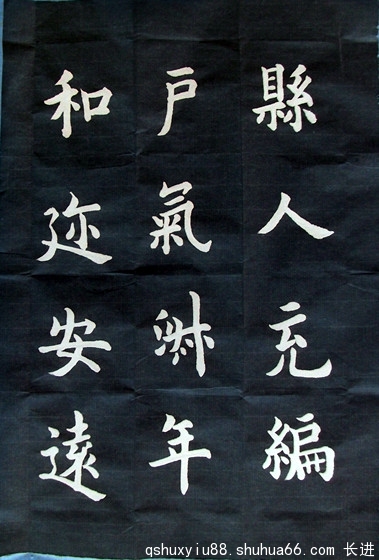 縣人充編
戶氣淑年
和迩安遠
qshuxyiu88.shuhua66.com 长进